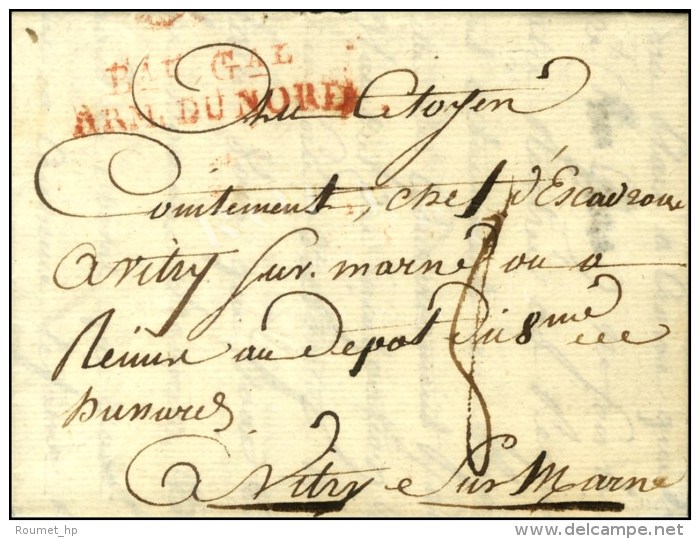 BAU. GAL
ARM. DU NORD.
Au Citoyen
Comtement, chef d'Escadrone
a vitry sur. marne ou a
Reims au Depot du 8me
hussards
A Vitry Sur Marne
Roumet_hp
delcampe.net